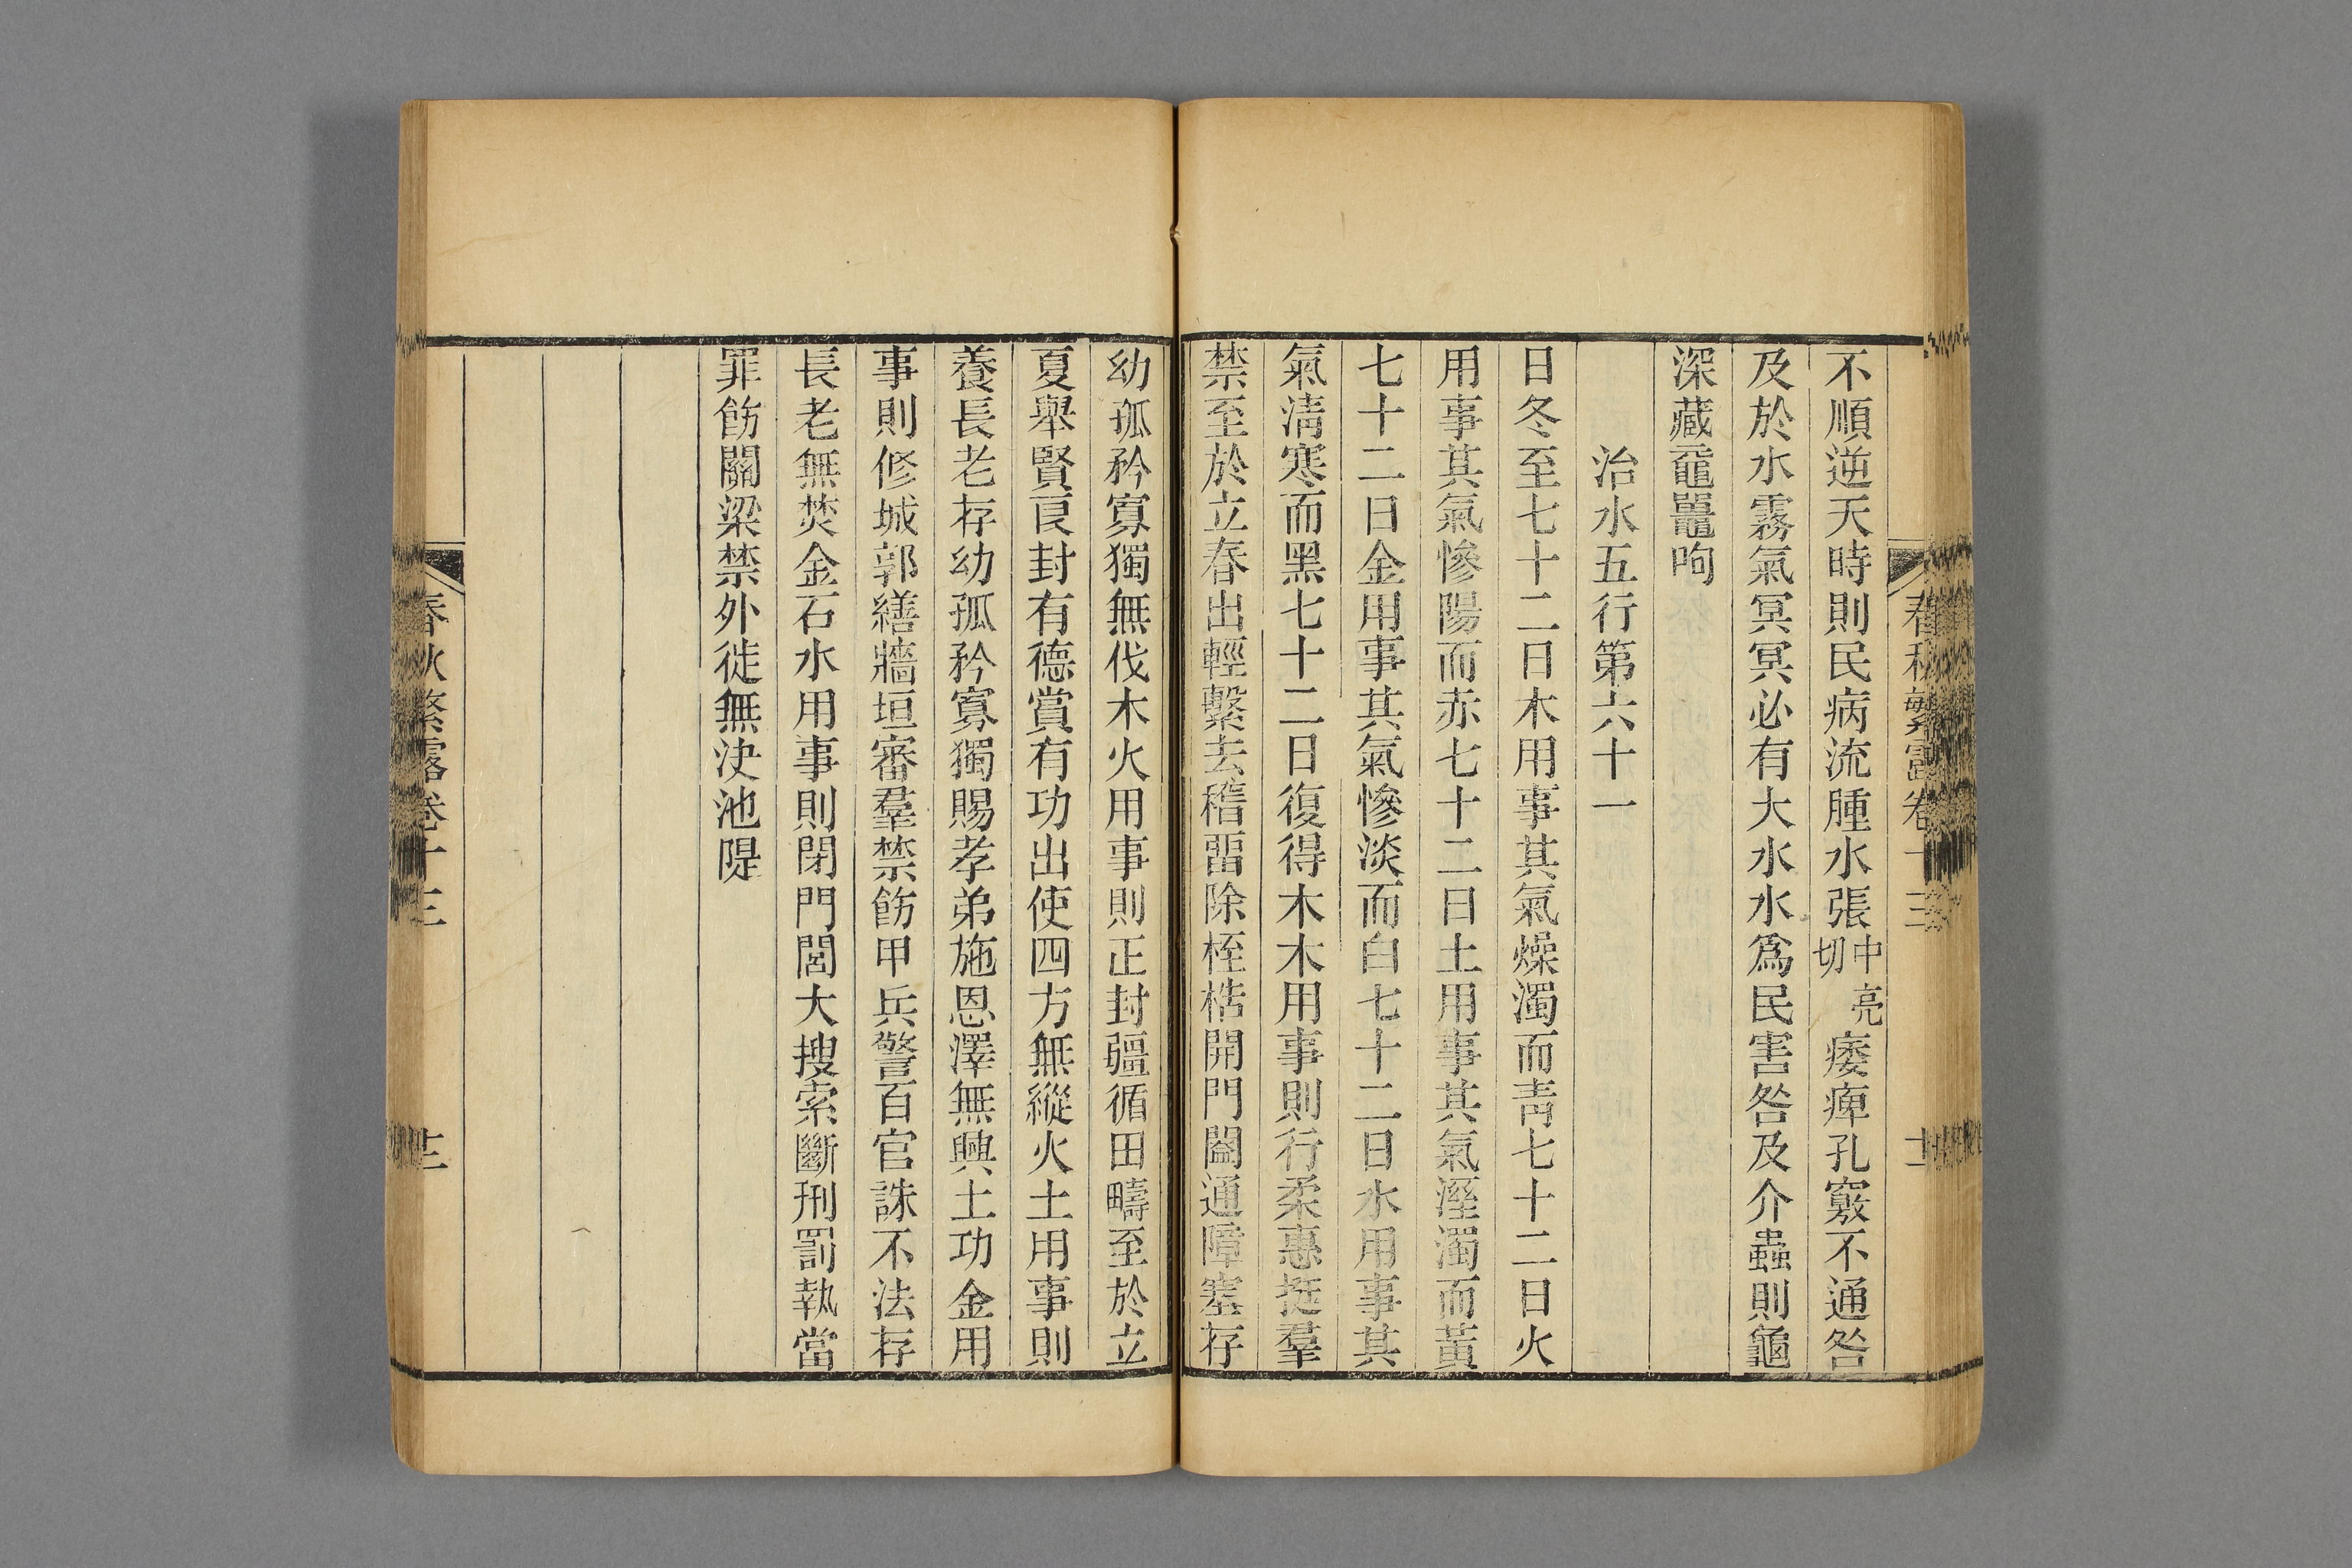 春秋繁露卷十三
不順逆天時則民病流腫水張中亮切痿痺孔竅不通咎
及於水霧氣冥冥必有大水水爲民害咎及介蟲則龜
深藏黿鼉呴
治水五行第六十一
日冬至七十二日木用事其氣燥濁而靑七十二日火
用事其氣慘陽而赤七十二日土用事其氣溼濁而黃
七十二日金用事其氣慘淡而白七十二日水用事其
氣淸寒而黑七十二日復得木木用事則行柔惠挺羣
禁至於立春出輕繫去稽畱除桎梏開門闔通障塞存
幼孤矜寡獨無伐木火用事則正封疆循田疇至於立
夏舉賢良封有德賞有功出使四方無縱火土用事則
養長老存幼孤矜寡獨賜孝弟施恩澤無興土功金用
事則修城郭繕牆垣審羣禁飭甲兵警百官誅不法存
長老無焚金石水用事則閉門閭大搜索斷刑罰執當
罪飭關梁禁外徙無決池隄
春秋繁露卷十三